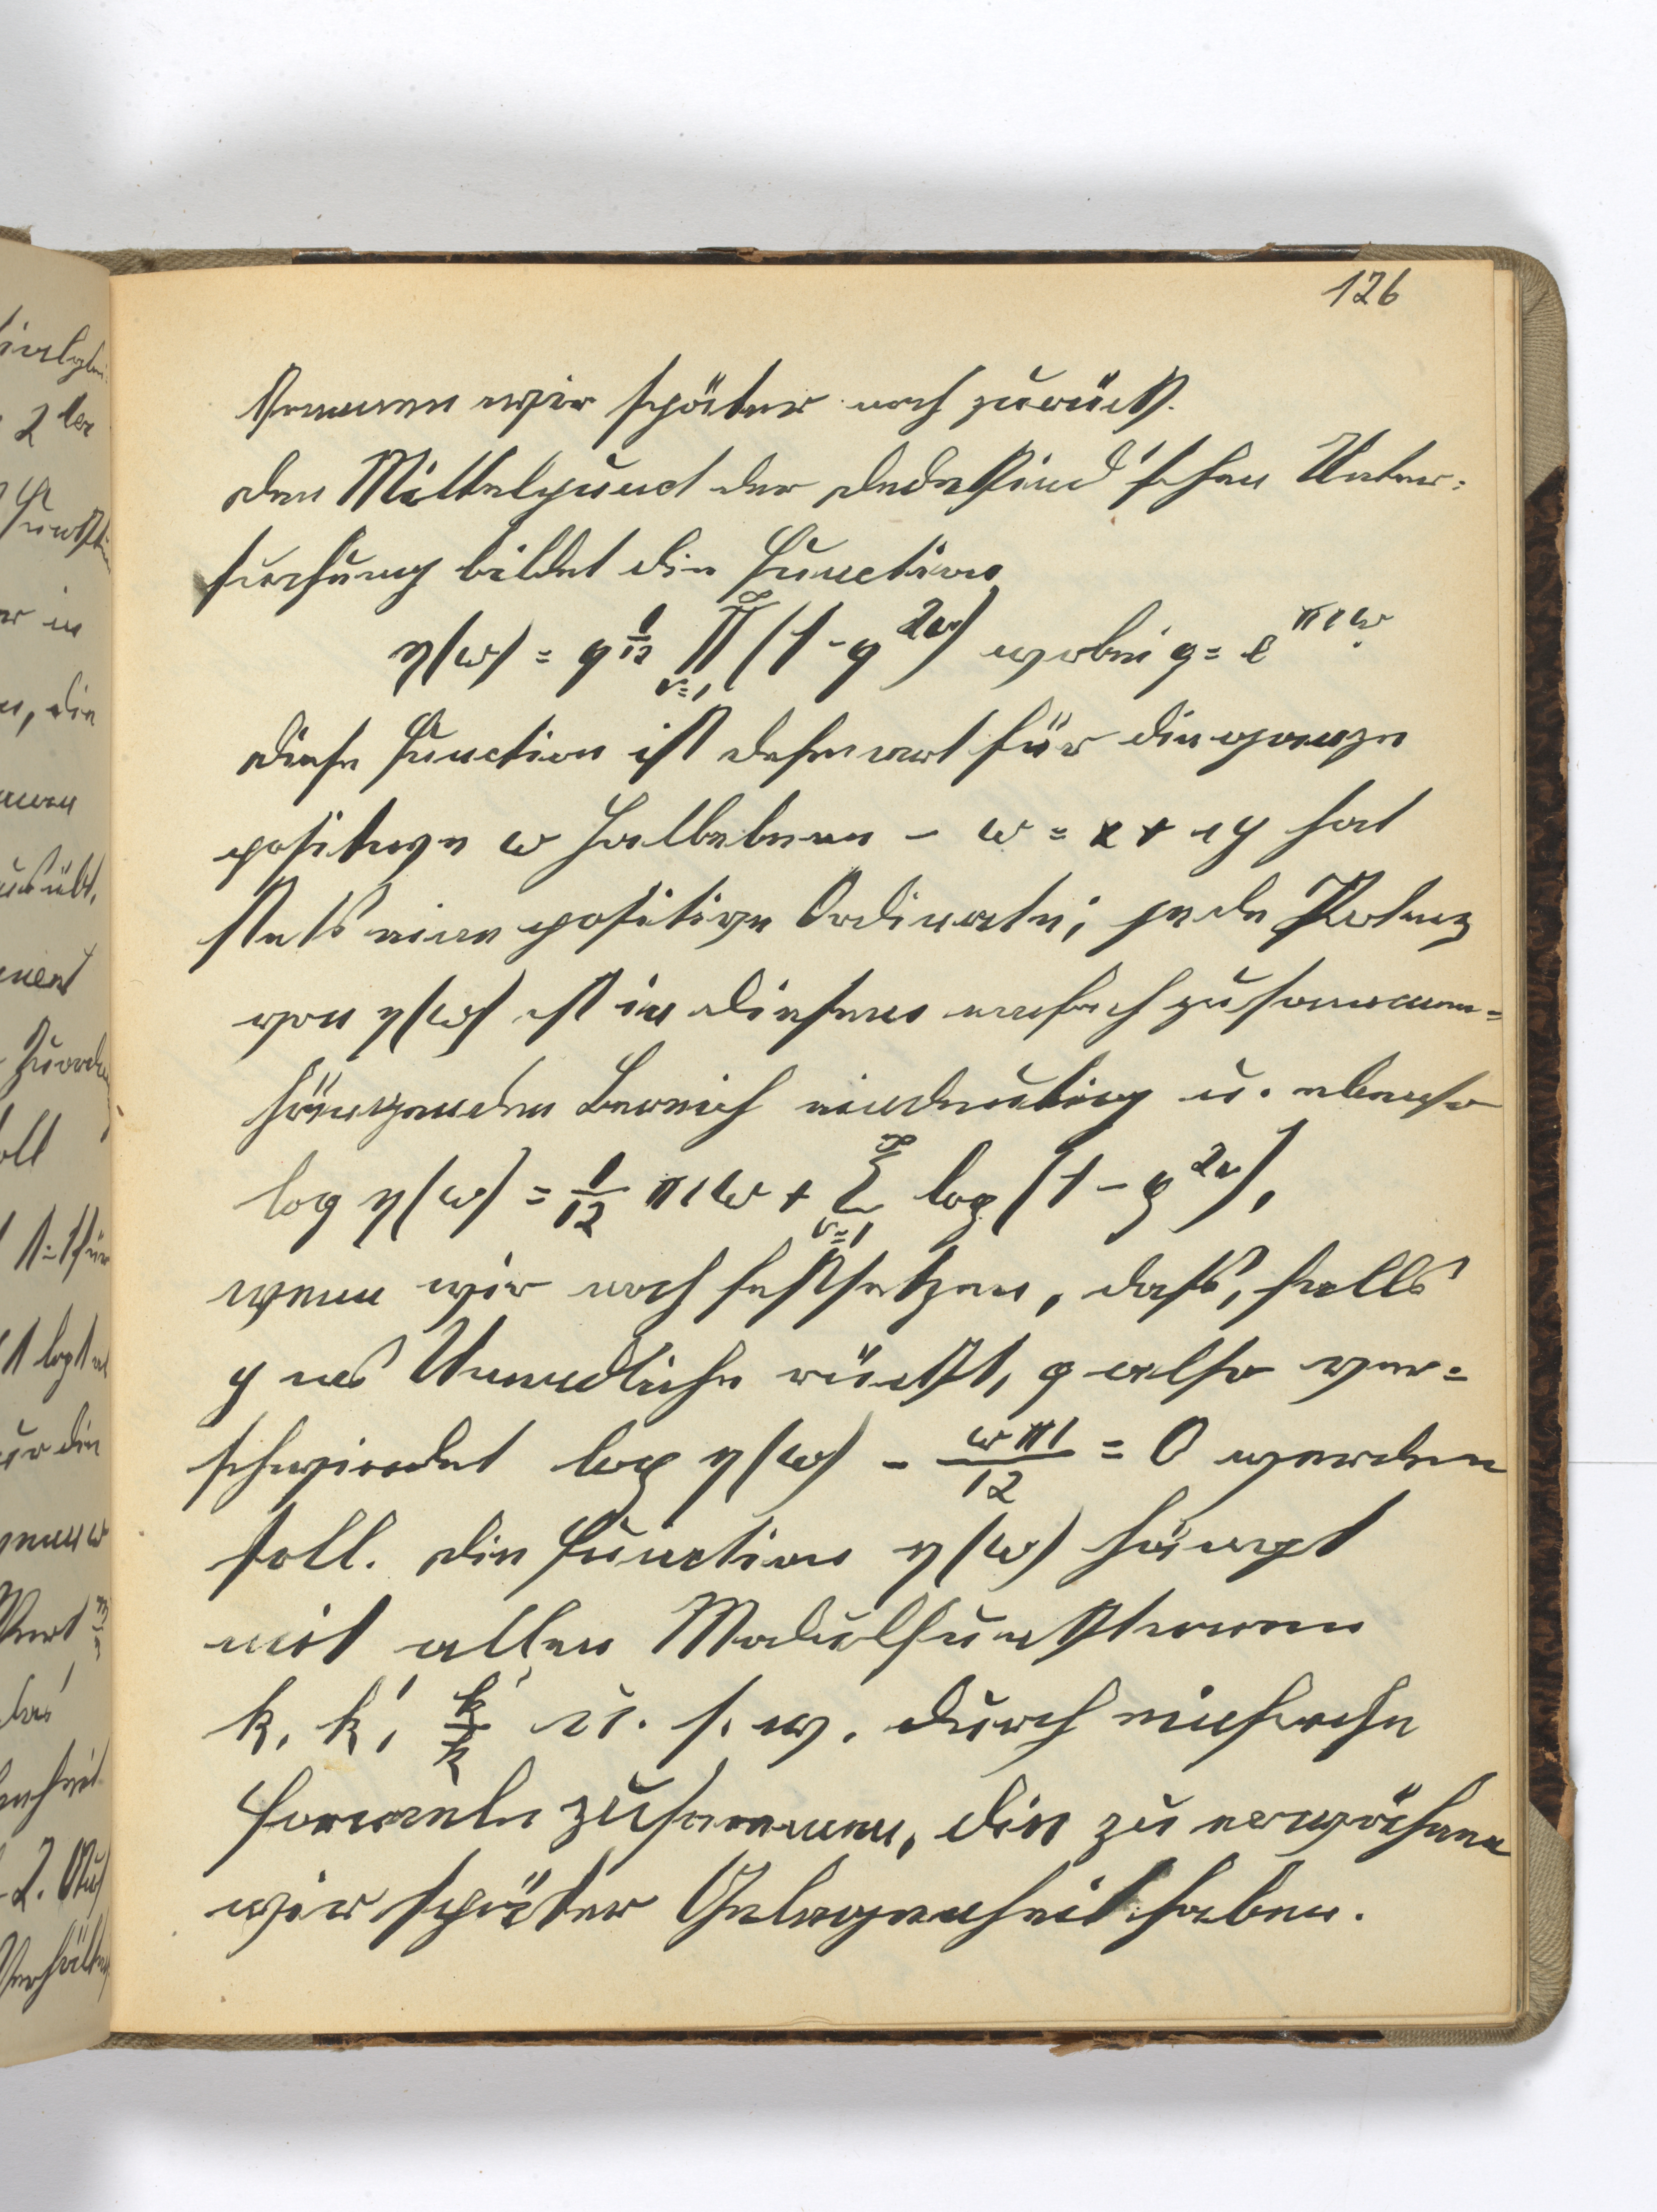 126
kommen wir später noch zurück.
Den Mittelpunct der Dedekind'schen Unter=
suchung bildet die Function
η(ω) = q^{1/12} ∏_{ν=1}^{∞} (1 - q^{2ν}) wobei q = e^{πiω}.
Diese Function ist definirt für die ganze
positive ω Halbebene – ω = x + iy hat
stets eine positive Ordinate; jede Potenz
von η(ω) ist in diesem einfach zusammen=
hängenden Bereich eindeutig u. ebenso
log η(ω) = 1/12 πiω + ∑_{ν=1}^{∞} log (1 - q^{2ν}),
wenn wir noch festsetzen, dass, falls
y ins Unendliche rückt, q also ver=
schwindet log η(ω) - ωπi/12 = 0 werden
soll. Die Function η(ω) hängt
mit allen Modulfunktionen
k, k', k'/k u. s. w. durch einfache
Formeln zusammen, die zu erwähnen
wir später Gelegenheit haben.